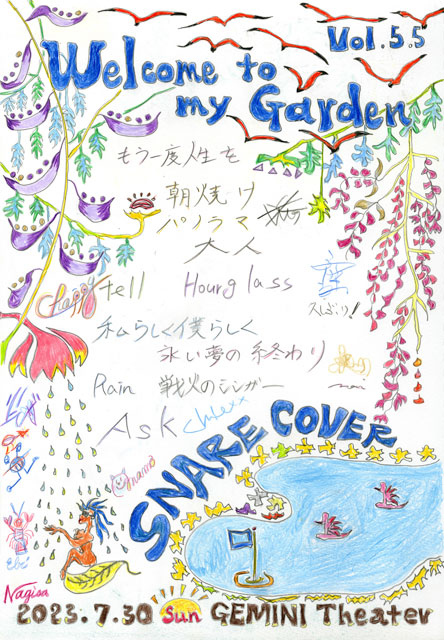 Vol.5.5
Welcome to
my Garden
もう一度人生を
朝焼け
パノラマ
大人
happy
tell Hourglass
空
久しぶり!
私らしく僕らしく
永い夢の終わり
Rain 戦火のシンガー
Ask
SNARE COVER
Ebi
Nagisa
2023.7.30 Sun GEMINI Theater